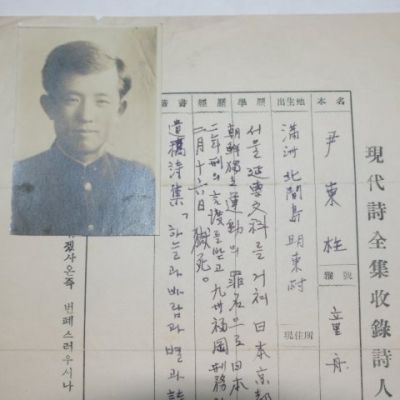 現代詩全集收錄詩人
本名
尹東柱
雅號
童舟
出生地
滿洲 北間島 明東村
現住所
學歷
서울 延專文科를 거쳐 日本京都
經歷
朝鮮獨立運動의 罪名으로 日本
二年刑의 言渡를 받고 九州福岡刑務
二月十六日 獄死。
遺稿詩集「하늘과 바람과 별과 詩
겠사온즉 번폐스러우시나